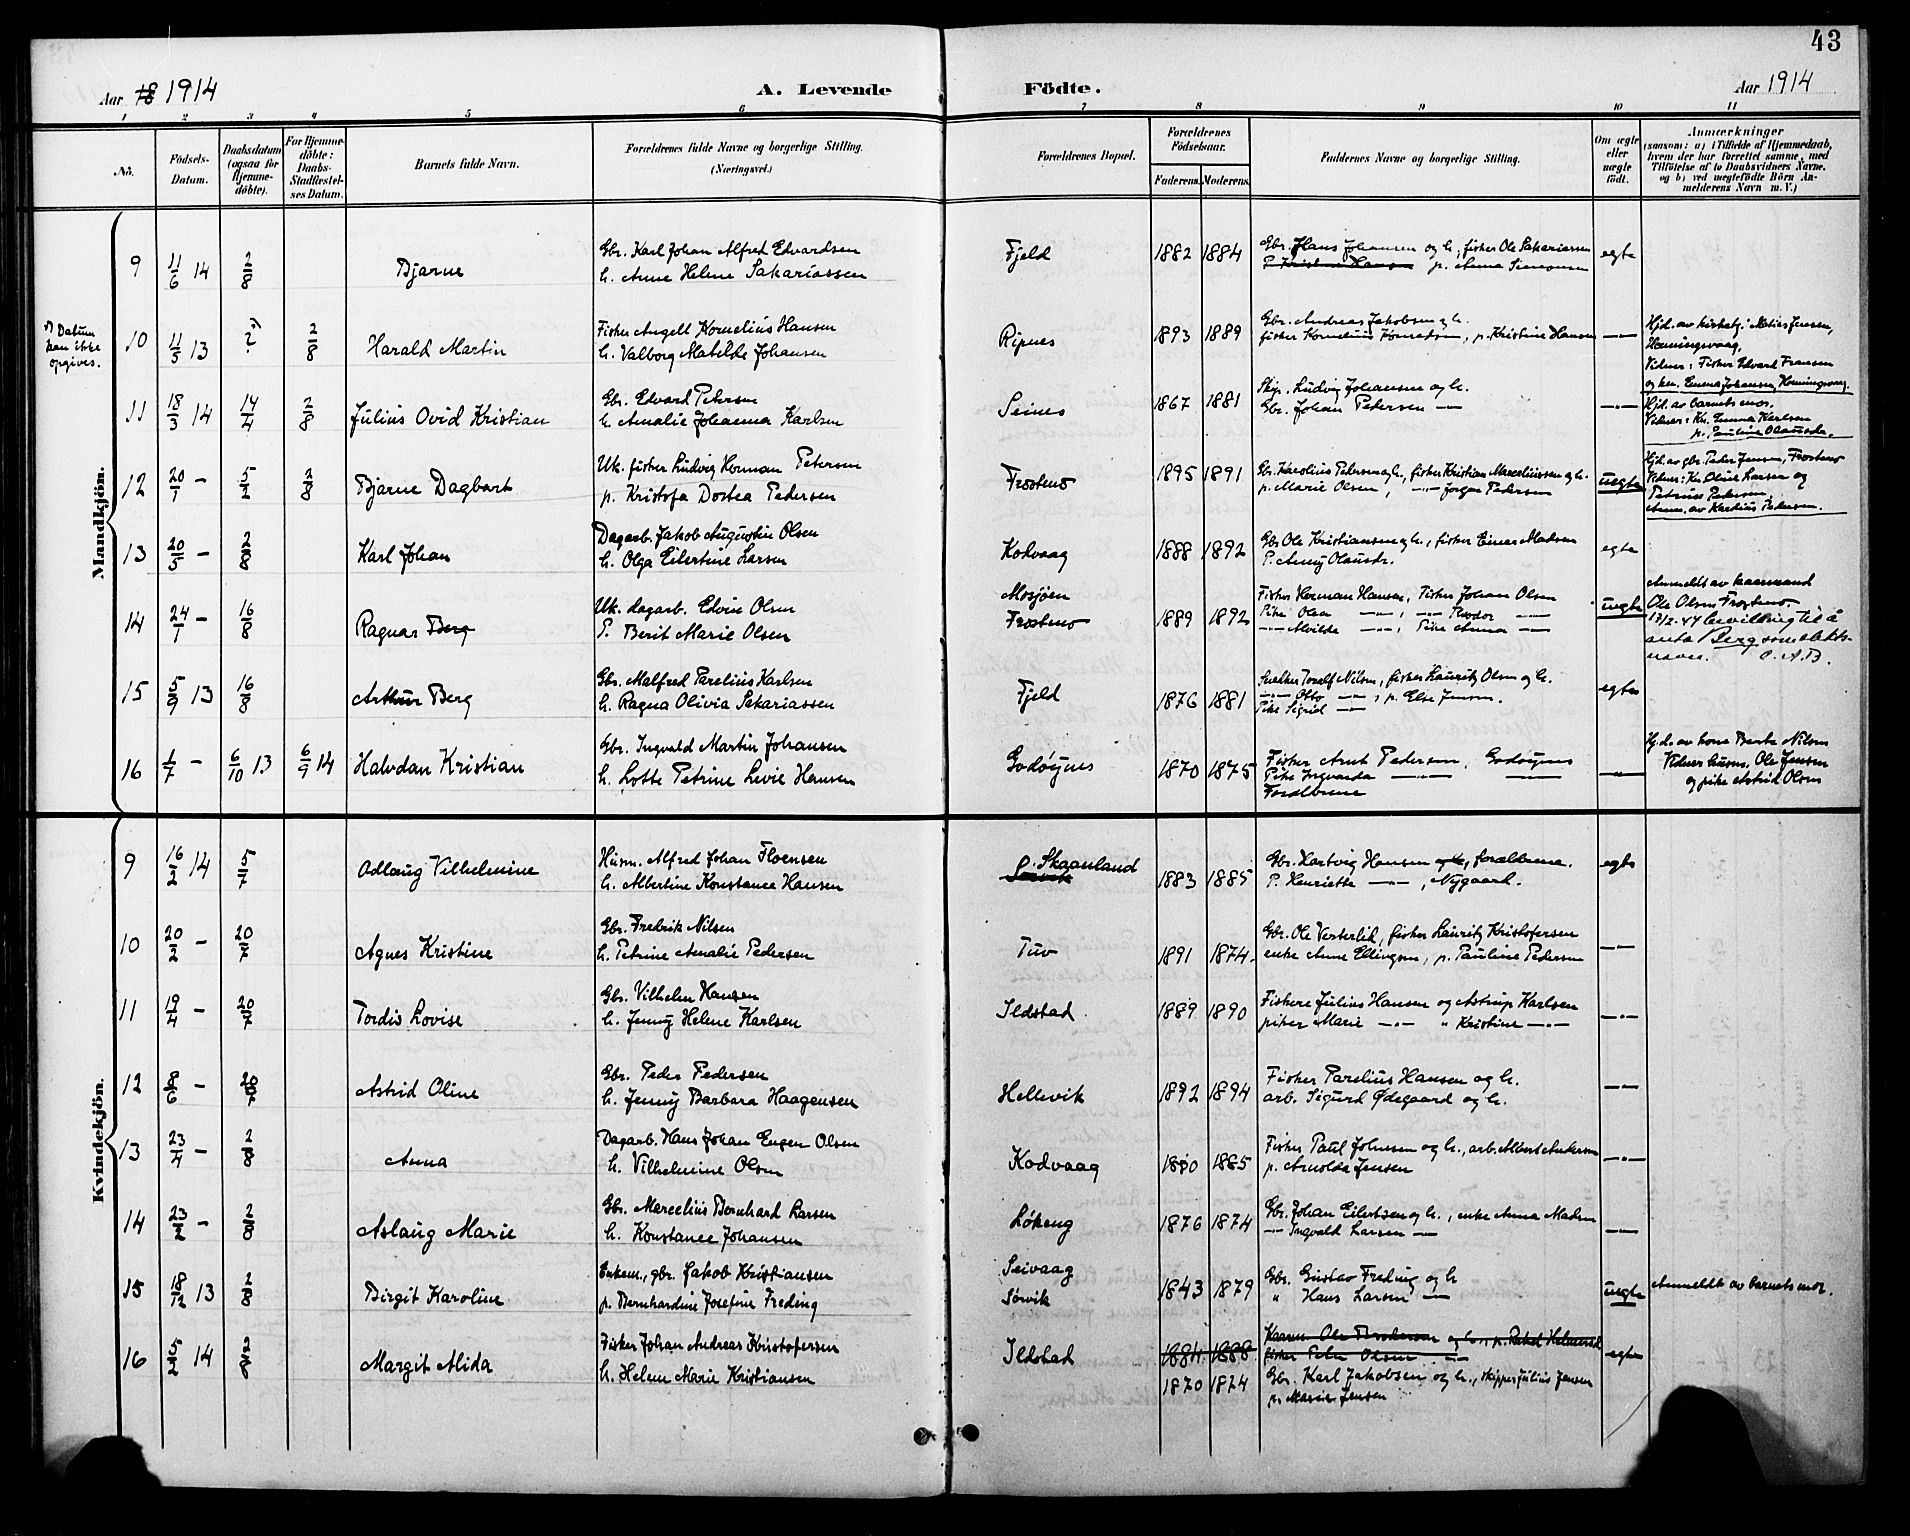 43
Aar 18 1914
A. Levende
Födte.
Aar 1914
1 2 3 4 5 6 7 8 9 10 11
No.
Födsels-Datum.
Daabsdatum (ogsaa for Hjemme-döbte).
For Hjemme-döbte: Daabs-Stadfæstel-ses Datum.
Barnets fulde Navn.
Forældrenes fulde Navne og borgerlige Stilling.
(Næringsvei.)
Forældrenes Bopæl.
Forældrenes Födselsaar.
Faderens. Moderens.
Faddernes Navne og borgerlige Stilling.
Om ægte eller uægte födt.
Anmærkninger
(saasom: a) i Tilfælde af Hjemmedaab,
hvem der har forrettet samme, med
Tilföielse af to Daabsvidners Navne,
og b) ved uægtefödte Börn An-
melderens Navn m. V.)
Mandkjön.
9 11/6 14 2/8 Bjarne
Gbr. Karl Johan Alfred Edvardsen
h. Anne Helene Sakariassen
Fjeld 1882 1884
Gbr. Hans Johansen og h., fisker Ole Sakariassen
P. Kristine Hansen p. Anna Simonsen
egte
*) Datum
kan ikke
opgives.
10 11/5 13 ? *) 2/8 Harald Martin
Fisker Angell Kornelius Hansen
h. Valborg Matilde Johansen
Ripnes 1893 1889
Gbr. Andreas Jakobsen og h.
fisker Kornelius Konradsen, p. Kristine Hansen
—"—
Hjd. av kirkebetj. Matias Jensen,
Honningsvaag.
Vidner: Fisker Edvard Fransen
og kn. Emma Johansen, Honningsvaag.
11 18/3 14 14/4 2/8 Julius Ovid Kristian
Gbr. Edvard Petersen
h. Amalie Johanna Karlsen
Seines 1867 1881
Skip. Ludvig Johansen og h.
Gbr. Johan Pedersen —"—
—"—
Hjd. av barnets mor.
Vidner: Kn. Emma Karlsen
p. Pauline Olausdr.
12 20/1 — 5/2 2/8 Bjarne Dagbart
Uk. fisker Ludvig Herman Petersen
p. Kristofa Dortea Pedersen
Frostmo 1895 1891
Gbr. Karolius Pedersen og h., fisker Kristian Marceliussen og h.
p. Marie Olsen, —"— Jørgen Pedersen
uegte
Hjd. av gbr. Peder Jensen, Frostmo
Vidner: Kn. Oline Larsen og
Petrine Pedersen.
Anm. av Karolius Pedersen.
13 20/5 — 2/8 Karl Johan
Dagarb. Jakob Augustin Olsen
h. Olga Eilertine Larsen
Kodvaag 1888 1892
Gbr. Ole Kristiansen og h., fisker Einar Madsen
P. Anny Olausdr.
egte
14 24/1 — 16/8 Ragnar Berg
Uk. dagarb. Edvin Olsen
P. Berit Marie Olsen
Mosjøen
Frostmo 1889 1892
Fisker Herman Hansen, Fisker Johan Olsen
Pike Olea —"—, —"— Peodor —"—
—"— Alvilde —"—, Pike Anna —"—
uegte
Anmeldt av kaarmand
Ole Olsen Frostmo.
17/2-44 bevilling til å
anta Berg som slekts-
navn. O.A.B.
15 5/9 13 16/8 Arthur Berg
Gbr. Malfred Parelius Karlsen
h. Ragna Olivia Sakariassen
Fjeld 1876 1881
Snekker Toralf Nilsen, fisker Lauritz Olsen og h.
—"— Otto —"—, p. Else Jensen.
Pike Sigrid —"—
egte
16 1/7 — 6/10 13 6/9 14 Halvdan Kristian
Gbr. Ingvald Martin Johansen
h. Lotte Petrine Levie Hansen
Godøynes 1870 1875
Fisker Arnt Pedersen, Godøynes
Pike Ingvarda —"— —"—
Forældrene
—"—
Hjd. av kone Berte Nilsen
Vidner husm. Ole Jensen
og pike Astrid Olsen
Kvindekjön.
9 16/2 14 5/7 Odlaug Vilhelmine
Husm. Alfred Johan Floensen
h. Albertine Konstance Hansen
Ø. Skaanland
Sørvik 1883 1885
Gbr. Hartvig Hansen og h., forældrene.
P. Henriette —"—, Nygaard.
egte
10 20/2 — 20/7 Agnes Kristine
Gbr. Fredrik Nilsen
h. Petrine Amalie Pedersen
Tuv 1891 1874.
Gbr. Ole Vesterlid, fisker Lauritz Kristofersen
enke Anne Ellingsen, p. Pauline Pedersen
—"—
11 19/4 — 20/7 Tordis Lovise
Gbr. Vilhelm Hansen
h. Jenny Helene Karlsen
Ildstad 1889 1890
Fiskere Julius Hansen og Astrup Karlsen
piker Marie —"— " Kristine —"—
—"—
12 8/6 — 20/7 Astrid Oline
Gbr. Peder Pedersen
h. Jenny Barbara Haagensen
Hellevik 1892 1894
Fisker Parelius Hansen og h.
arb. Sigurd Ødegaard og h.
—"—
13 23/4 — 2/8 Anna
Dagarb. Hans Johan Eugen Olsen
h. Vilhelmine Olsen
Kodvaag 1880 1885
Fisker Paul Johnsen og h., arb. Albert Andersen
p. Arnolda Jensen
—"—
14 23/2 — 2/8 Aslaug Marie
Gbr. Marcelius Bernhard Larsen
h. Konstance Johansen
Løkeng 1876 1874
Gbr. Johan Eilertsen og h., enke Anna Madsen
—"— Ingvald Larsen —"—
—"—
15 18/12 13 2/8 Birgit Karoline
Enkem., gbr. Jakob Kristiansen
p. Bernhardine Josefine Freding
Seivaag
Sørvik 1843 1879
Gbr. Gustav Freding og h
" Hans Larsen —"—
uegte
Anmeldt av barnets mor.
16 5/2 14 2/8 Margit Alida
Fisker Johan Andreas Kristofersen
h. Helene Marie Kristiansen
Ildstad 1884 1888
1870 1874
Kaarm. Ole Pedersen og h.
fisker Peter Olsen —"—
Gbr. Karl Jakobsen og h., skipper Julius Jensen
p. Marie Jensen
egte